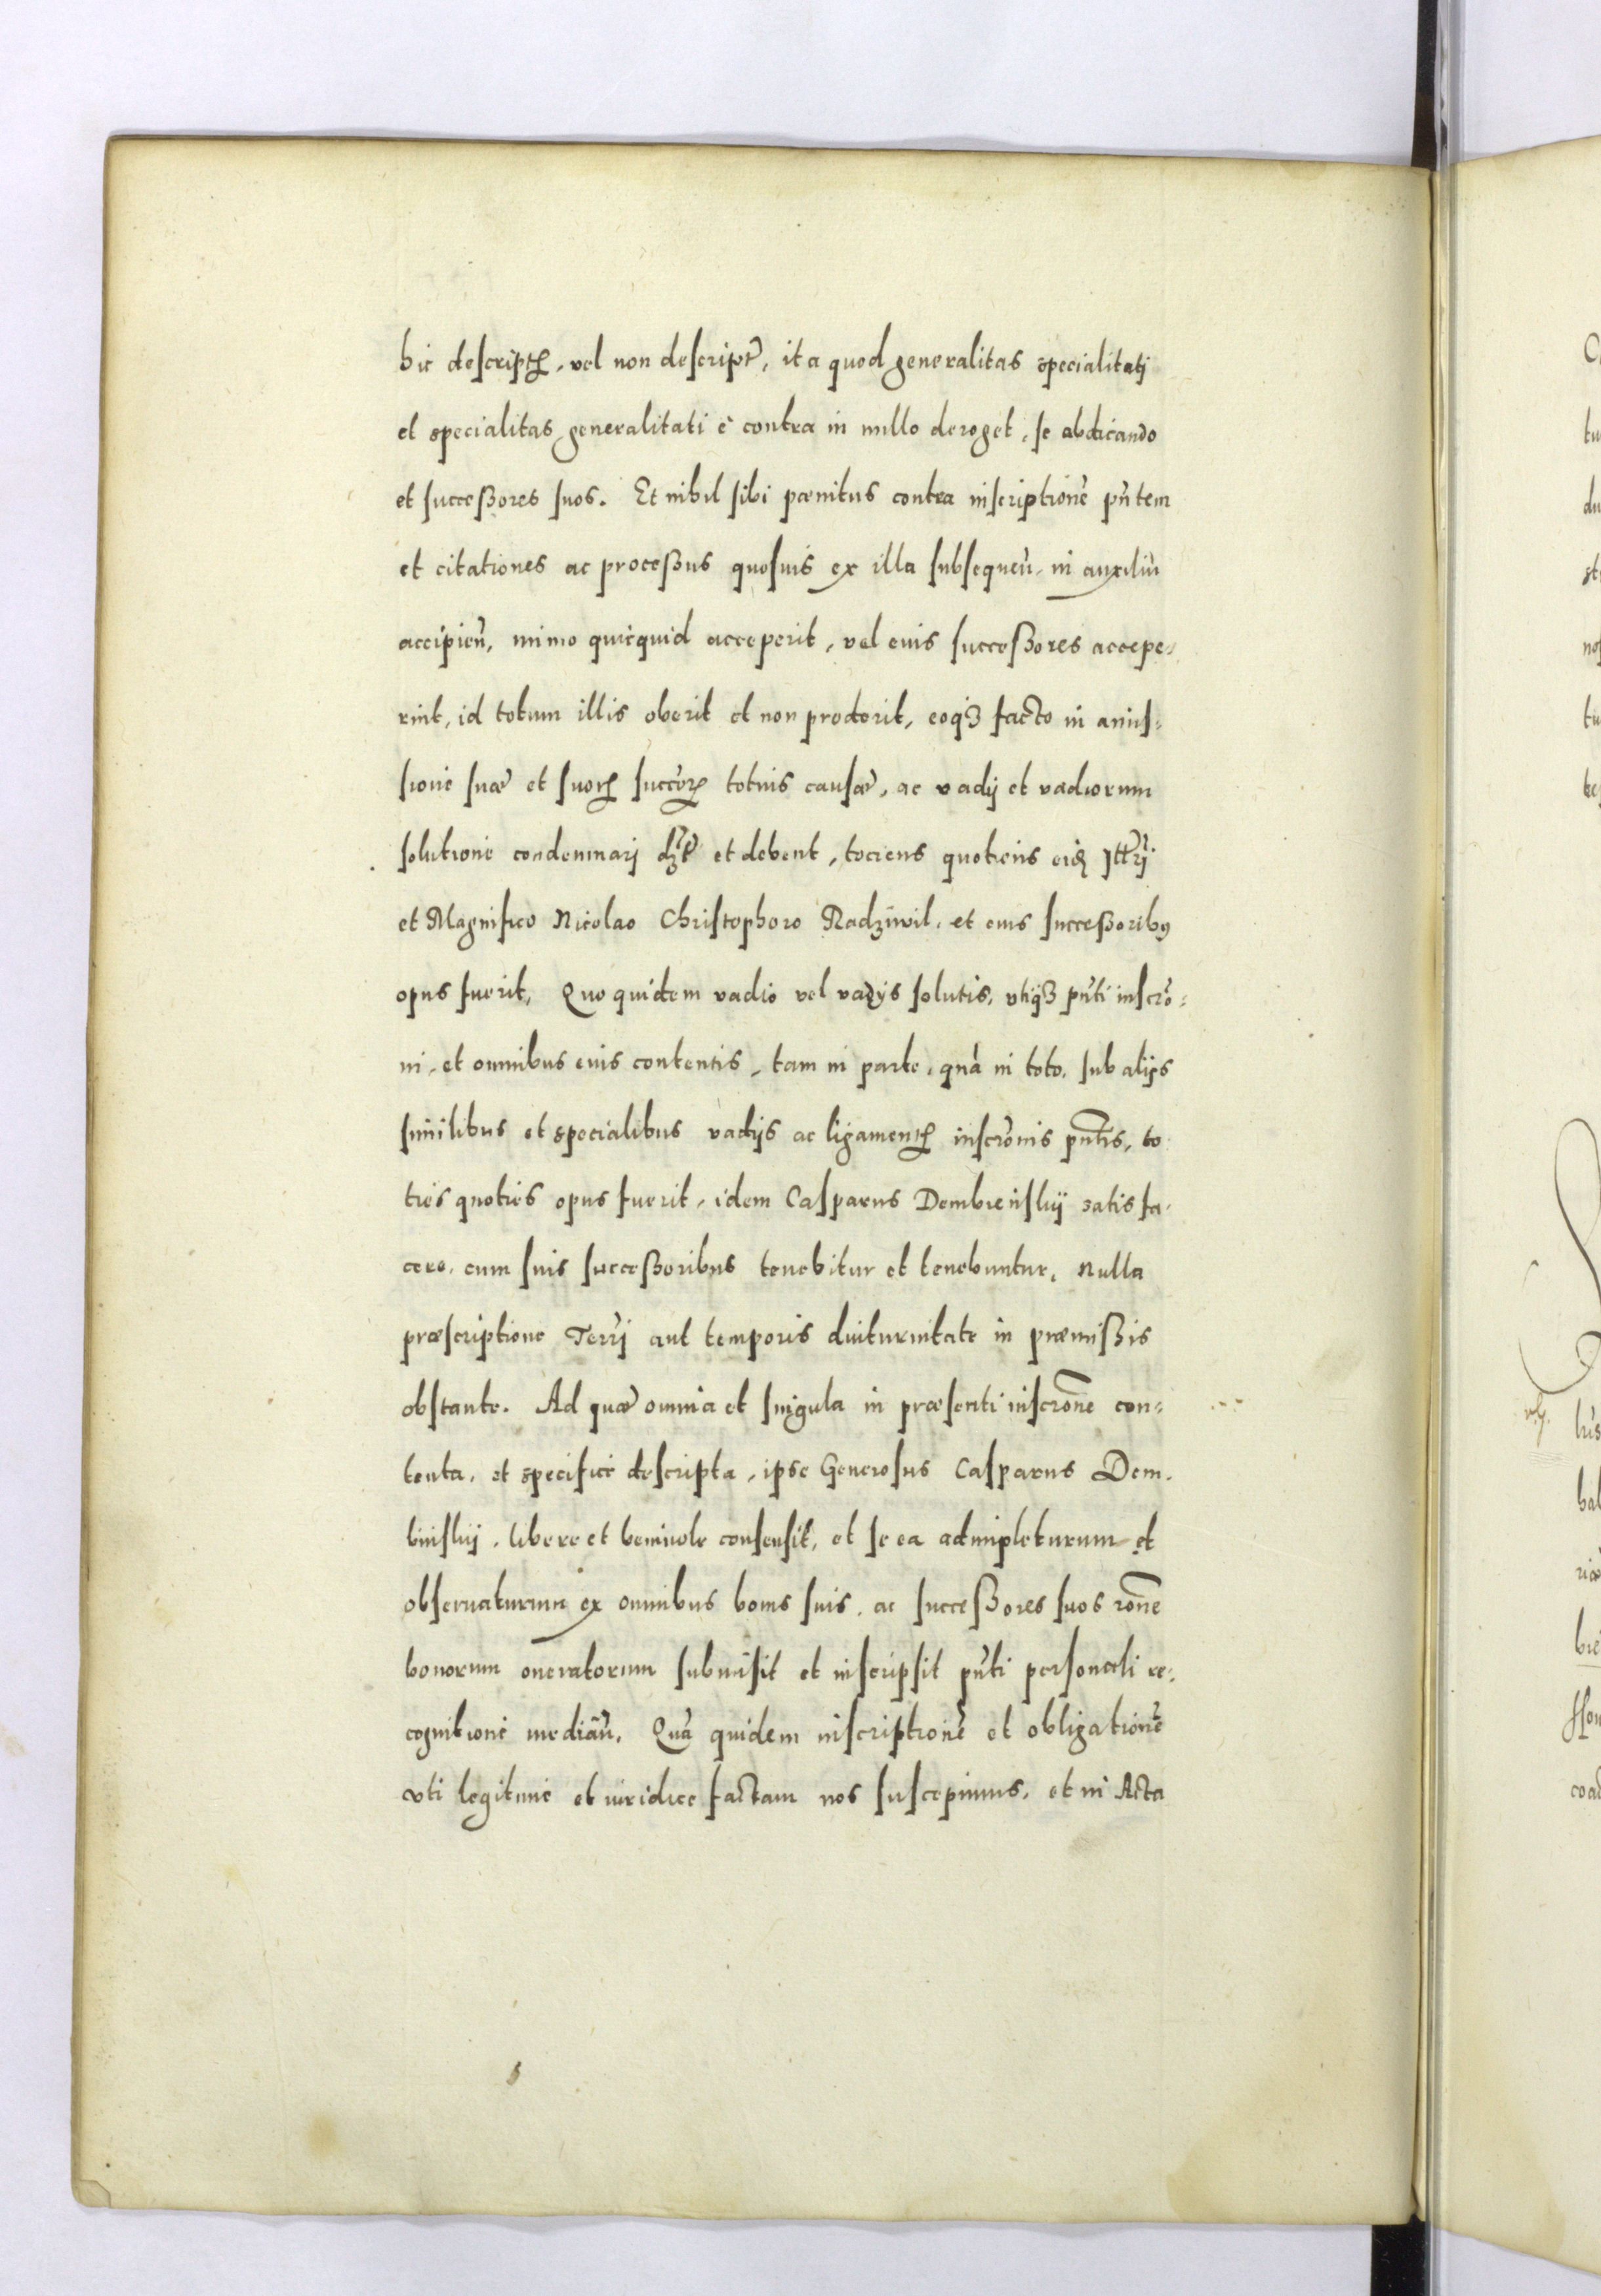 hic descriptꝝ, vel non descript̃, ita quod generalitas specialitatj
et specialitas generalitati è contra in nullo deroget, se abdicando
et successores suos. Et nihil sibi pœnitus contra inscriptionẽ pñtem
et citationes ac processus quosuis ex illa subsequeñ. in auxiliũ
accipieñ, immo quicquid acceperit, vel euis successores accepe-
rint, id totum illis oberit et non proderit, eoqꝫ facto in amis-
sione suæ et suoꝝ succõꝝ totius causæ, ac vadij et vadiorum
solutione condemnarj et debent, tociens quotiens
et Magnifico Nicolao Christophoro Radziwil, et eius successoribꝯ
opus fuerit, Quo quidem vadio vel vadijs solutis, vtiqꝫ pñti inscrõ-
ni, et omnibus euis contentis, tam in parte, quã in toto, sub alijs
similibus et specialibus vadijs ac ligamentꝝ inscrõnis pñtis, to
ties quoties opus fuerit, idem Casparus Dembienskij satisfa-
cere, cum suis successoribus tenebitur et tenebuntur, nulla
præscriptione Terrj aut temporis diuturnitate in præmissis
obstante. Ad quæ omnia et singula in præsenti inscrõne con-
tenta, et specificè descripta, ipse Generosus Casparus Dem-
binskij, libere et beniuole consensit, et se ea adimpleturum et
obseruaturum ex omnibus bonis suis, ac successores suos rõne
bonorum oneratorum submisit et inscripsit pñti personali re-
cognitione mediañ. Quã quidem inscriptionẽ et obligationẽ
vti legitimè et iuridice factam nos suscepimus, et in Acta